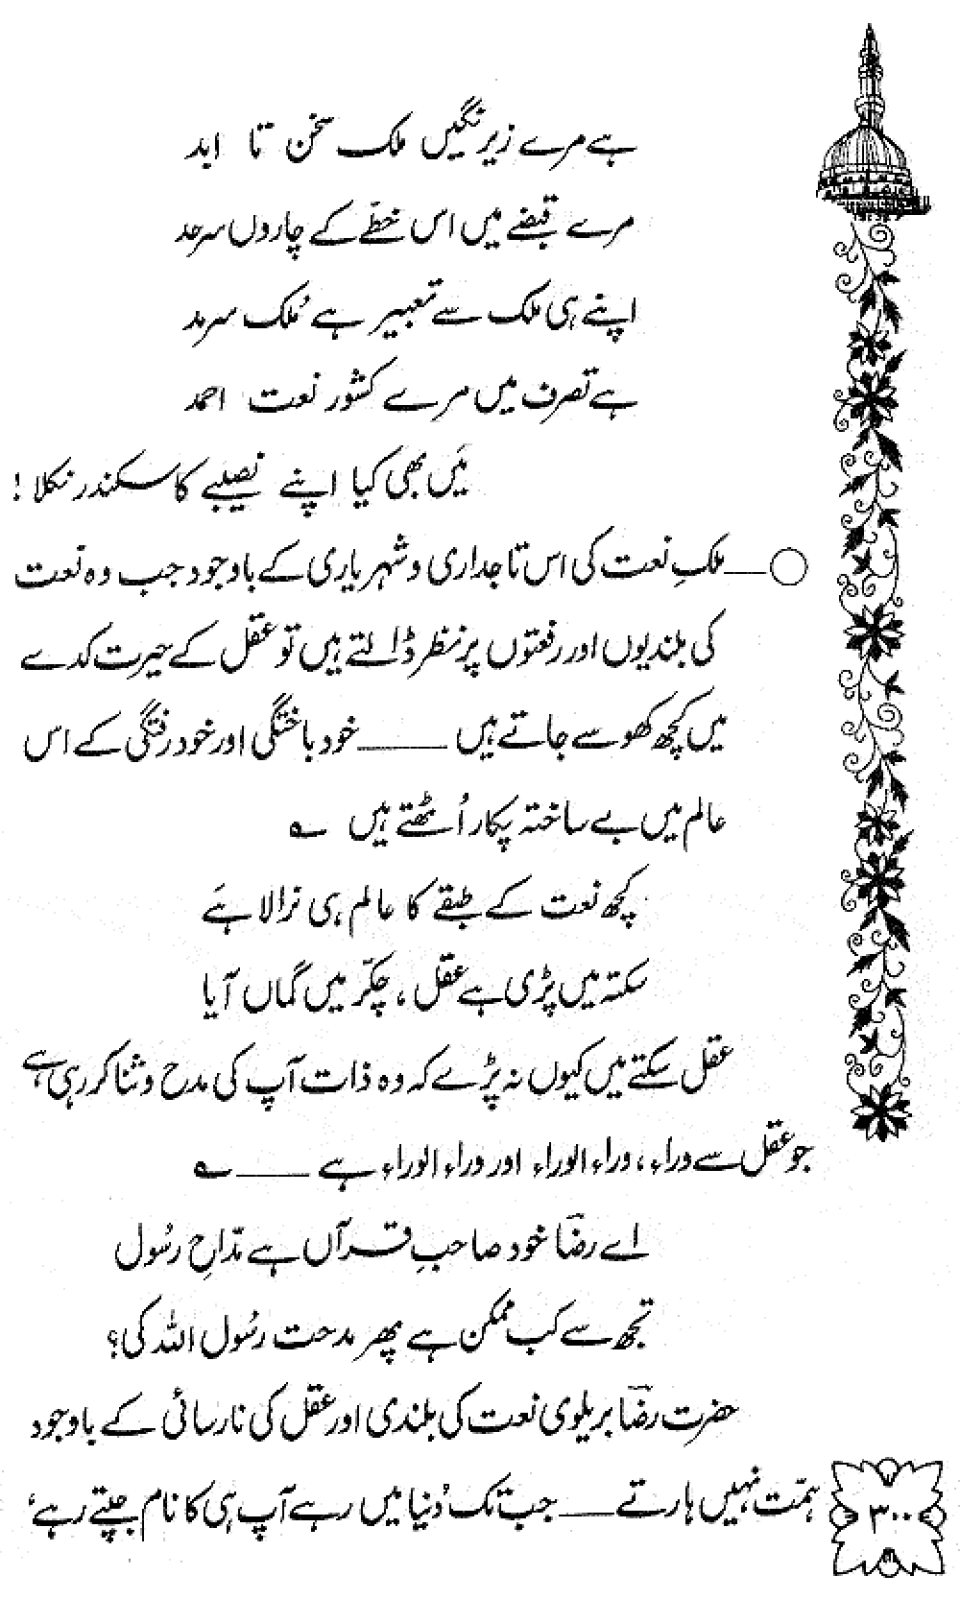 ہے مرے زیر نگیں ملک سخن تا ابد
مرے قبضے میں اس خطّے کے چاروں سرحد
اپنے ہی ملک سے تعبیر ہے مُلک سرمد
ہے تصرف میں مرے کشور نعت احمد
مَیں بھی کیا اپنے نصیبے کا سکندر نکلا!
○__ ملکِ نعت کی اس تاجداری و شہریاری کے باوجود جب وہ نعت
کی بلندیوں اور رفعتوں پر نظر ڈالتے ہیں تو عقل کے حیرت کدے
میں کچھ کھو سے جاتے ہیں ____ خود باختگی اور خود رفتگی کے اس
عالم میں بے ساختہ پکار اُٹھتے ہیں ؎
کچھ نعت کے طبقے کا عالم ہی نرالا ہَے
سکتہ میں پڑی ہے عقل، چکّر میں گماں آیا
عقل سکتے میں کیوں نہ پڑے کہ وہ ذات آپ کی مدح و ثنا کر رہی ہے
جو عقل سے وراء، وراء الوراء اور وراء الوراء ہے ____ ؎
اے رضؔا خود صاحبِ قرآں ہے مدّاحِ رسُول
تجھ سے کب ممکن ہے پھر مدحت رسُول اللہ کی؟
حضرت رضؔا بریلوی نعت کی بلندی اور عقل کی نارسائی کے باوجود
ہمّت نہیں ہارتے ___ جب تک دُنیا میں رہے آپ ہی کا نام جپتے رہے،
۳۰۰